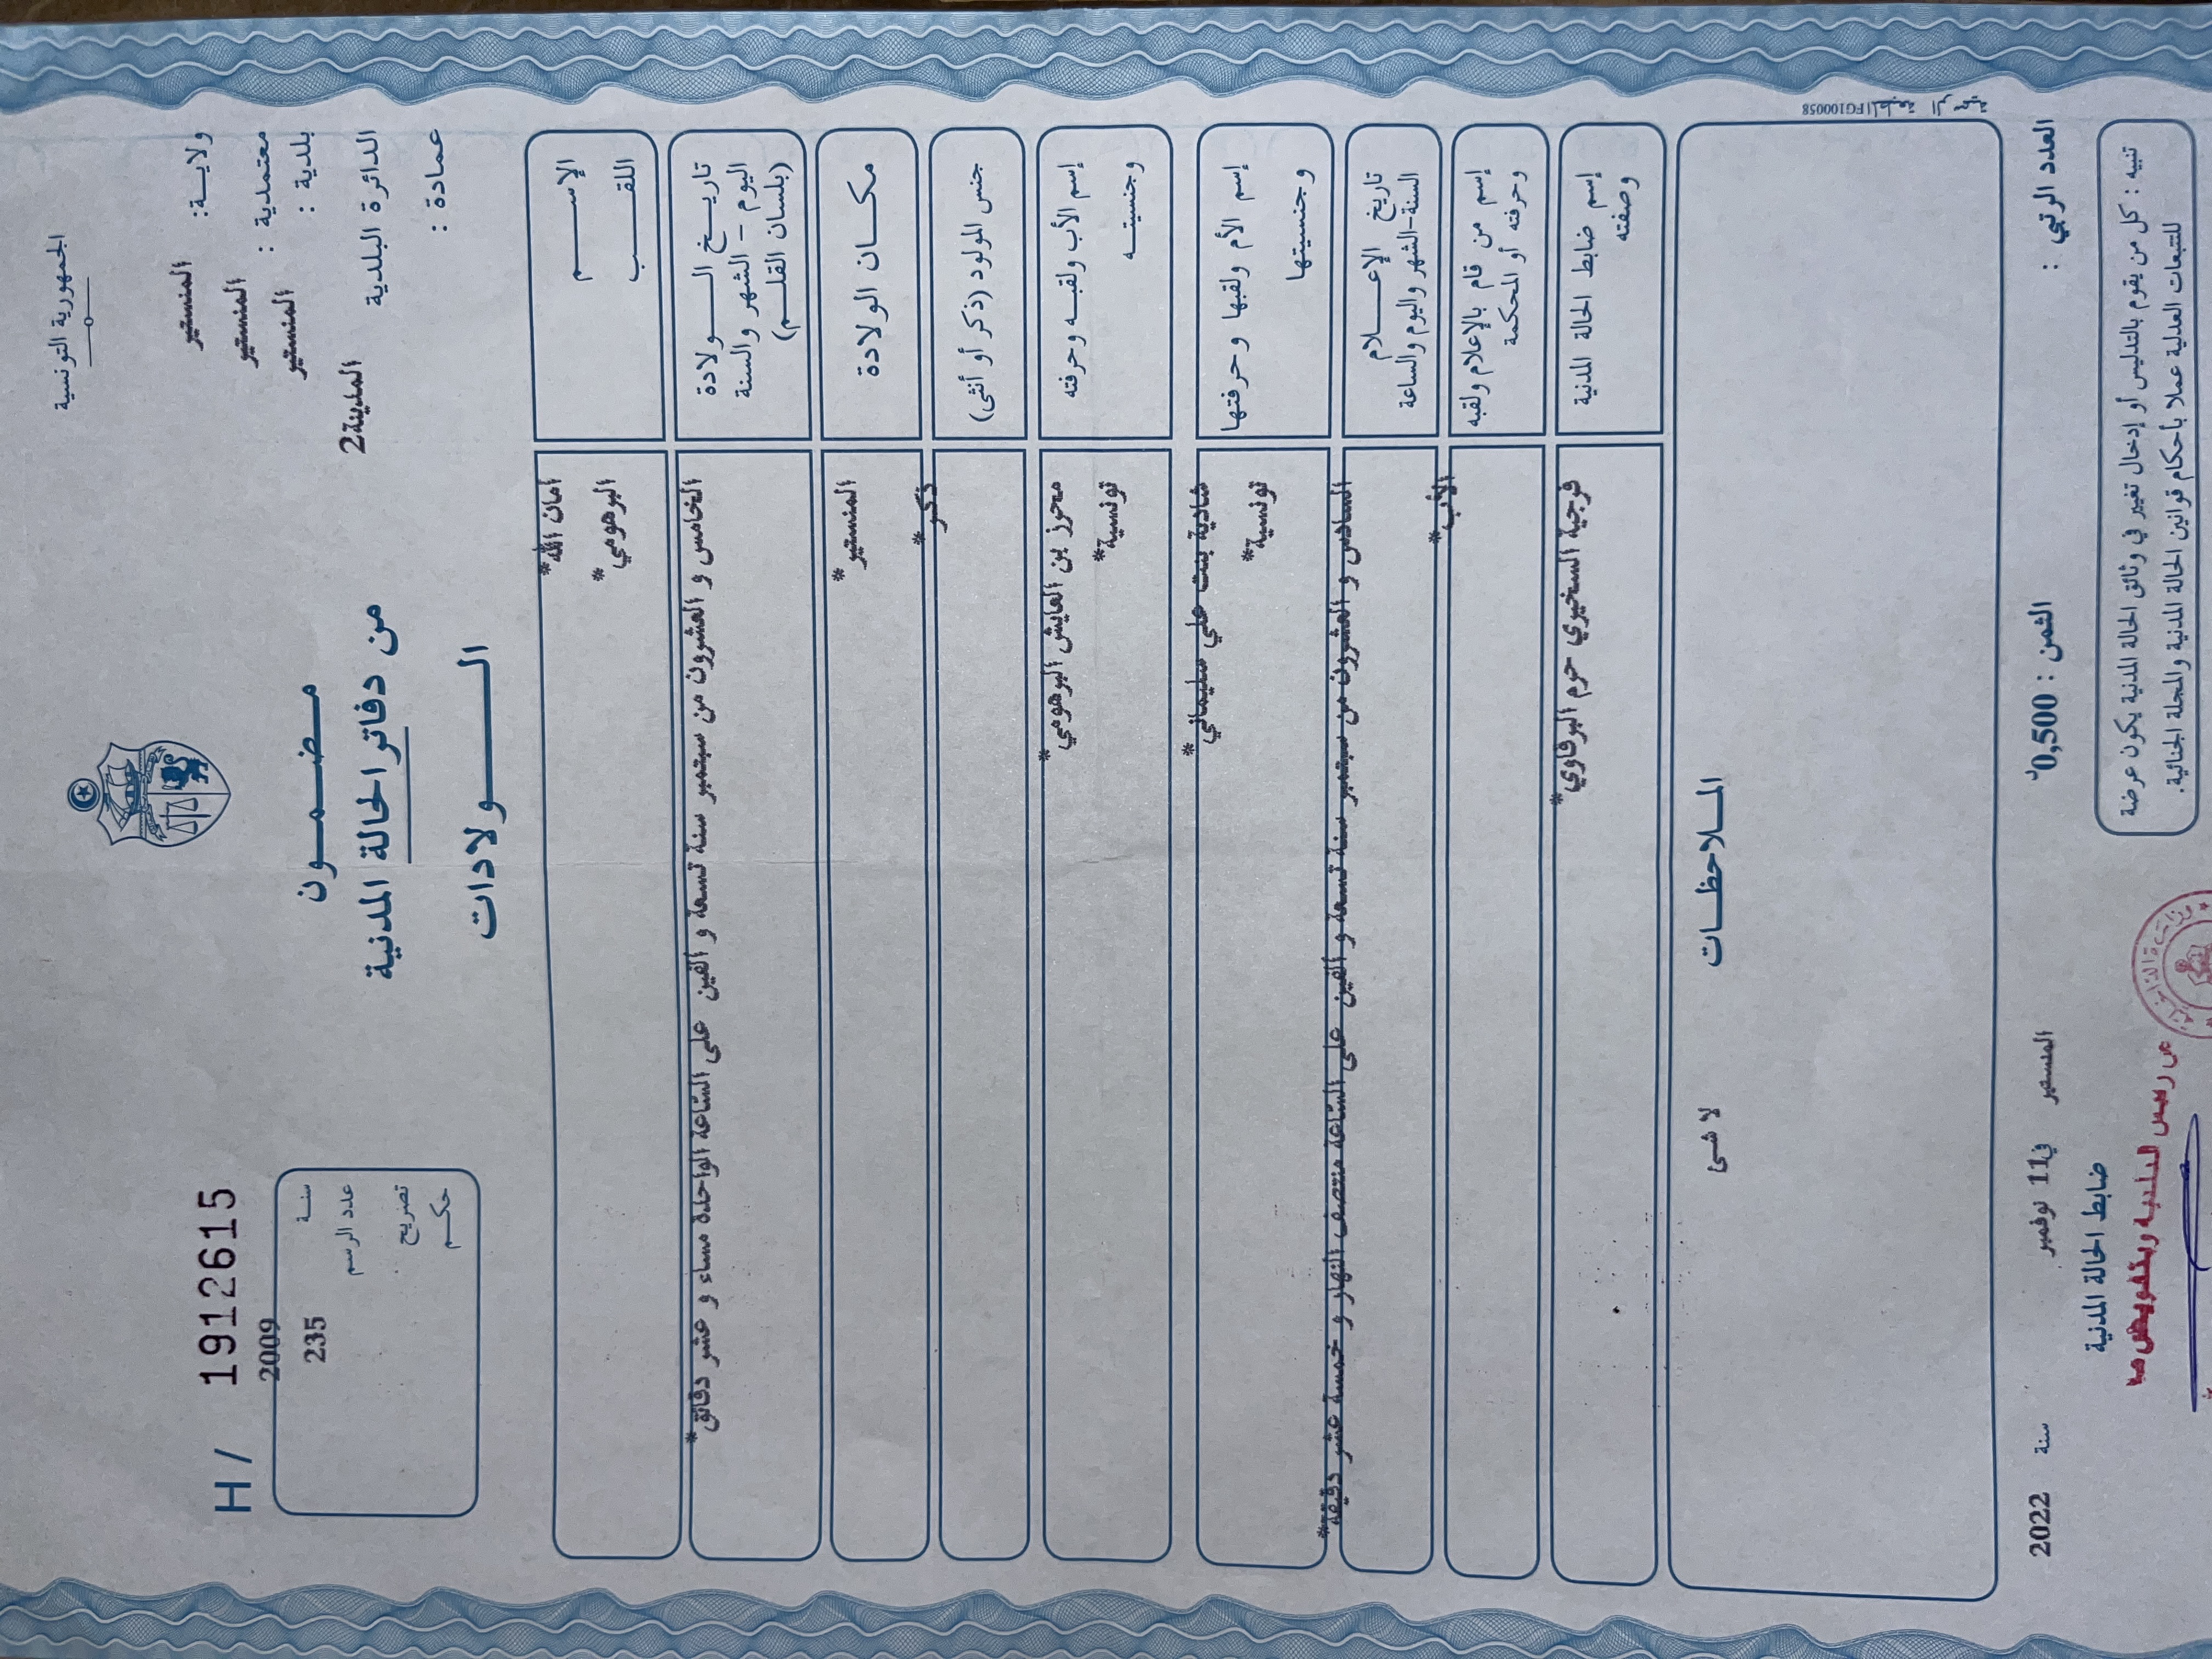 الجمهورية التونسية
ولايـة: المنستير
معتمدية : المنستير
بلدية : المنستير
الدائرة البلدية المدينة2
عمادة :
مـضـمـون
من دفاتر الحالة المدنية
الـولادات
H / 1912615
سنة 2009
عدد الرسم 235
تصريح
حكم
الإسـم امان الله*
اللقـب البرهومي*
تاريـخ الـولادة الخامس و العشرون من سبتمبر سنة تسعة و الفين على السّاعة الواحدة مساء و عشر دقائق*
اليوم - الشهر والسنة
(بلسان القلـم)
مكـان الولادة المنستير*
جنس المولود (ذكر أو أنثى) ذكر*
إسم الأب ولقبـه وحرفته محرز بن العايش البرهومي*
وجنسيتـه تونسية*
إسم الأم ولقبها وحرفتها شادية بنت علي سليماني*
وجنسيتها تونسية*
تاريخ الإعـلام السادس و العشرون من سبتمبر سنة تسعة و الفين على السّاعة منتصف النهار و خمسة عشر دقيقة*
السنة-الشهر واليوم والساعة
إسم من قام بالإعلام ولقبه الأب*
وحرفته أو المحكمة
إسم ضابط الحالة المدنية فرجية السخيري حرم البرقاوي*
وصفته
المـلاحظـات
لا شئ
FG100058 المطبعة الرسمية
العدد الرتبي :
الثمن : 0,500د
المنستير في11 نوفمبر سنة 2022
ضابط الحالة المدنية
تنبيه : كل من يقوم بالتدليس أو إدخال تغيير في وثائق الحالة المدنية يكون عرضة
للتتبعات العدلية عملا بأحكام قوانين الحالة المدنية والمجلة الجنائية.
عن رئيس البلدية وبتفويض منه